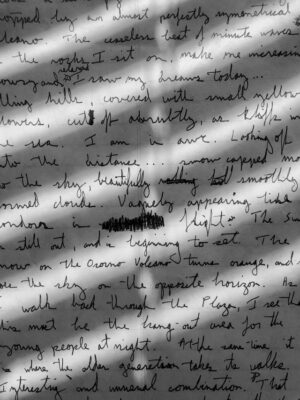 topped by an almost perfectly symmetrical
volcano. The ceaseless beat of minute waves
the rocks I sit on, make me increasing
drowsy and relaxed I saw my dreams today...
rolling hills, covered with small yellow
flowers, cut off abruptly, as cliffs in
the sea. I am in awe. Looking off
into the distance... snow capped m
the sky, beautifully smoothly
formed clouds. Vaguely appearing like
condors in flight. The Sun
is still out, and is beginning to set. The
snow on the Osorno Volcano turns orange, and
the sky on the opposite horizon. As
I walk back through the Plaza, I see th
this must be the hang-out area for the
young people at night. At the same time it
is where the older generation takes its walks.
Interesting and unusual combination. That